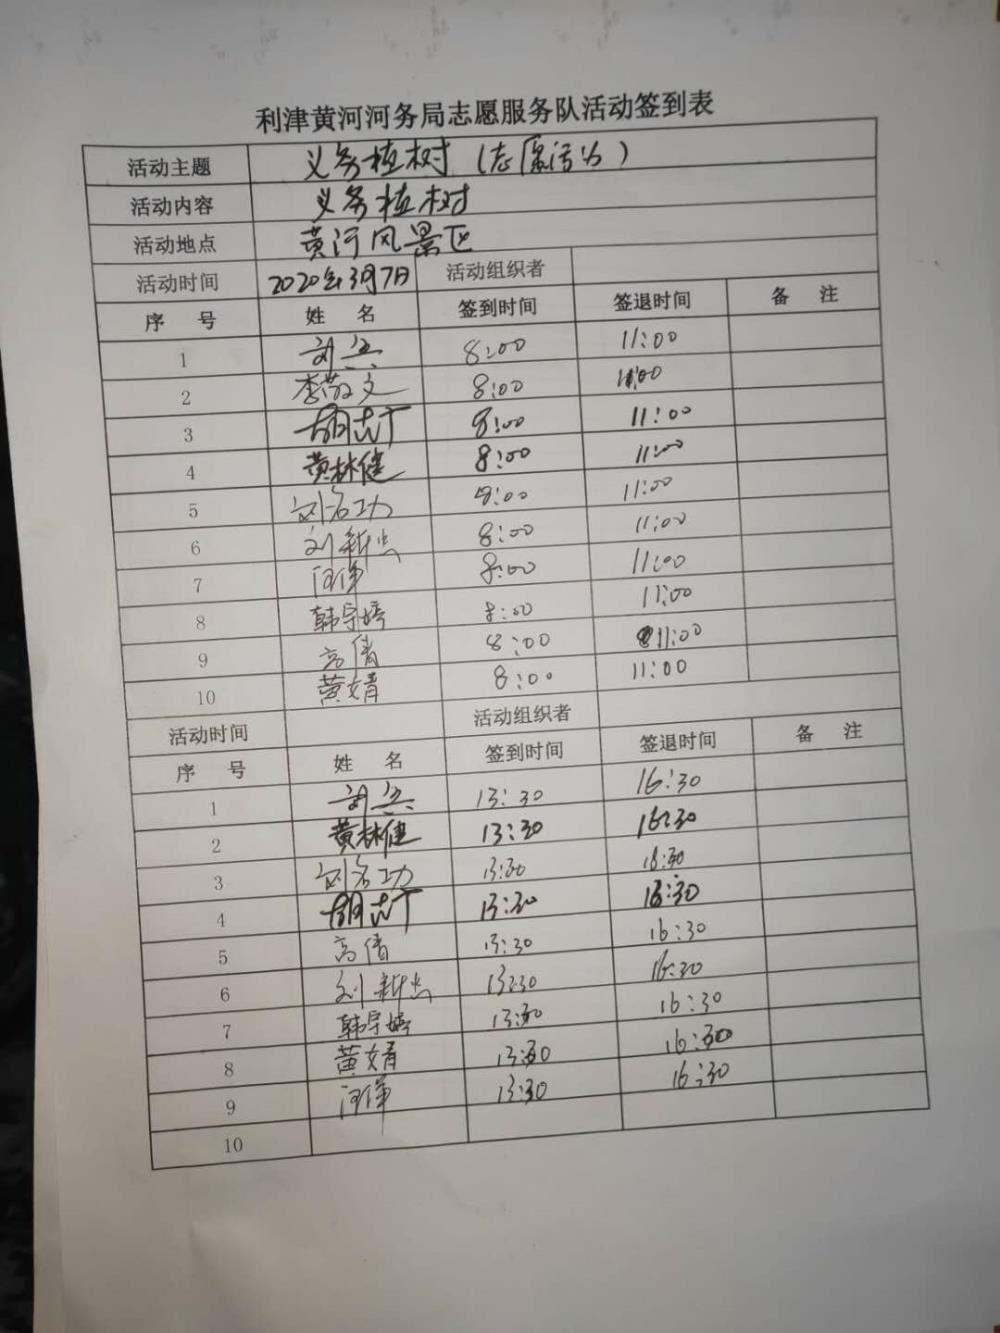 利津黄河河务局志愿服务队活动签到表
活动主题 义务植树（志愿活动）
活动内容 义务植树
活动地点 黄河风景区
活动时间 2020年3月7日 活动组织者
序 号 姓 名 签到时间 签退时间 备 注
1 8:00 11:00
2 李敬文 8:00 11:00
3 胡志广 8:00 11:00
4 黄林健 8:00 11:00
5 刘名功 8:00 11:00
6 刘新杰 8:00 11:00
7 8:00 11:00
8 韩宇婷 8:00 11:00
9 高倩 8:00 11:00
10 黄婧 8:00 11:00
活动时间 活动组织者
序 号 姓 名 签到时间 签退时间 备 注
1 13:30 16:30
2 黄林健 13:30 16:30
3 刘名功 13:30 16:30
4 胡志广 13:30 16:30
5 高倩 13:30 16:30
6 刘新杰 13:30 16:30
7 韩宇婷 13:30 16:30
8 黄婧 13:30 16:30
9 13:30 16:30
10